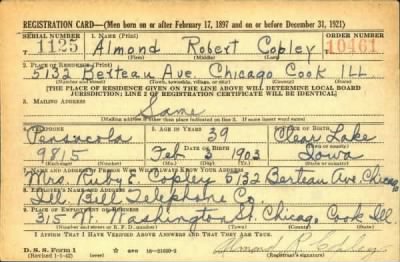 REGISTRATION CARD—(Men born on or after February 17, 1897 and on or before December 31, 1921)
SERIAL NUMBER 1. NAME (Print) ORDER NUMBER
T 1125 Almond Robert Copley 10461
(First) (Middle) (Last)
2. PLACE OF RESIDENCE (Print)
5132 Berteau Ave. Chicago Cook ILL
(Number and street) (Town, township, village, or city) (County) (State)
[THE PLACE OF RESIDENCE GIVEN ON THE LINE ABOVE WILL DETERMINE LOCAL BOARD
JURISDICTION; LINE 2 OF REGISTRATION CERTIFICATE WILL BE IDENTICAL]
3. MAILING ADDRESS
Same
[Mailing address if other than place indicated on line 2. If same insert word same]
4. TELEPHONE 5. AGE IN YEARS 6. PLACE OF BIRTH
Pensacola 39 Clear Lake
DATE OF BIRTH
9815 Feb 3 1903 Iowa
(Exchange) (Number) (Mo.) (Day) (Yr.) (State or country)
7. NAME AND ADDRESS OF PERSON WHO WILL ALWAYS KNOW YOUR ADDRESS
Mrs. Ruby E. Copley 5132 Berteau Ave. Chicago
8. EMPLOYER'S NAME AND ADDRESS
Ill. Bell Telephone Co.
9. PLACE OF EMPLOYMENT OR BUSINESS
315 W. Washington St. Chicago Cook Ill.
(Number and street or R. F. D. number) (Town) (County) (State)
I AFFIRM THAT I HAVE VERIFIED ABOVE ANSWERS AND THAT THEY ARE TRUE.
D. S. S. Form 1
(Revised 1-1-42) (over) 16—21630-2 Almond R. Copley